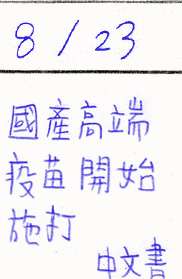 8/23
國產高端
疫苗開始
施打
中文書